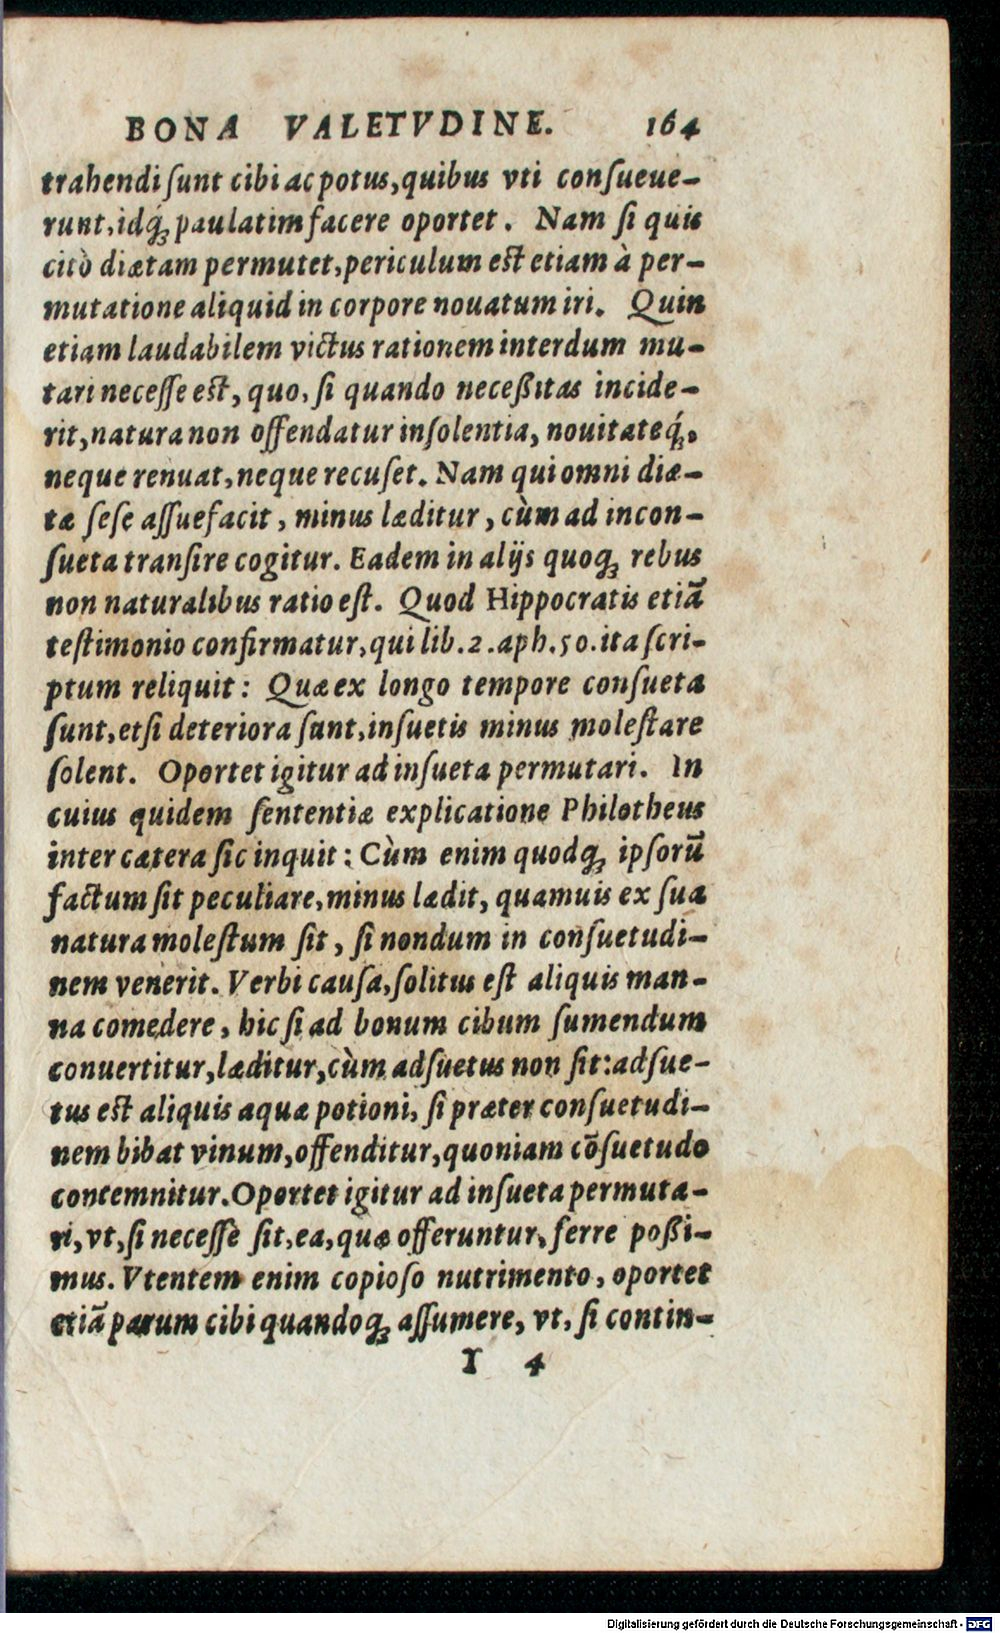 BONA VALETVDINE. 164
trahendi ſunt cibi ac potus, quibus vti conſueue-
runt, idq́ꝫ paulatim facere oportet. Nam ſi quis
citò diætam permutet, periculum est etiam à per-
mutatione aliquid in corpore nouatum iri. Quin
etiam laudabilem victus rationem interdum mu-
tari neceſſe est, quo, ſi quando neceßitas incide-
rit, natura non offendatur inſolentia, nouitateq́ꝫ,
neque renuat, neque recuſet. Nam qui omni diæ-
tæ ſeſe aſſuefacit, minus læditur, cùm ad incon-
ſueta tranſire cogitur. Eadem in alijs quoqꝫ rebus
non naturalibus ratio eſt. Quod Hippocratis etiã
teſtimonio confirmatur, qui lib. 2. aph. 50. ita ſcri-
ptum reliquit: Quæ ex longo tempore conſueta
ſunt, etſi deteriora ſunt, inſuetis minus moleſtare
ſolent. Oportet igitur ad inſueta permutari. In
cuius quidem ſententiæ explicatione Philotheus
inter cætera ſic inquit: Cùm enim quodqꝫ ipſorũ
factum ſit peculiare, minus lædit, quamuis ex ſua
natura moleſtum ſit, ſi nondum in conſuetudi-
nem venerit. Verbi cauſa, ſolitus eſt aliquis man-
na comedere, hic ſi ad bonum cibum ſumendum
conuertitur, læditur, cùm adſuetus non ſit: adſue-
tus est aliquis aquæ potioni, ſi præter conſuetudi-
nem bibat vinum, offenditur, quoniam cõſuetudo
contemnitur. Oportet igitur ad inſueta permuta-
ri, vt, ſi neceſſe ſit, ea, quæ offeruntur, ferre poßi-
mus. Vtentem enim copioſo nutrimento, oportet
etiã parum cibi quandoqꝫ aſſumere, vt, ſi contin-
I 4
Digitalisierung gefördert durch die Deutsche Forschungsgemeinschaft - DFG